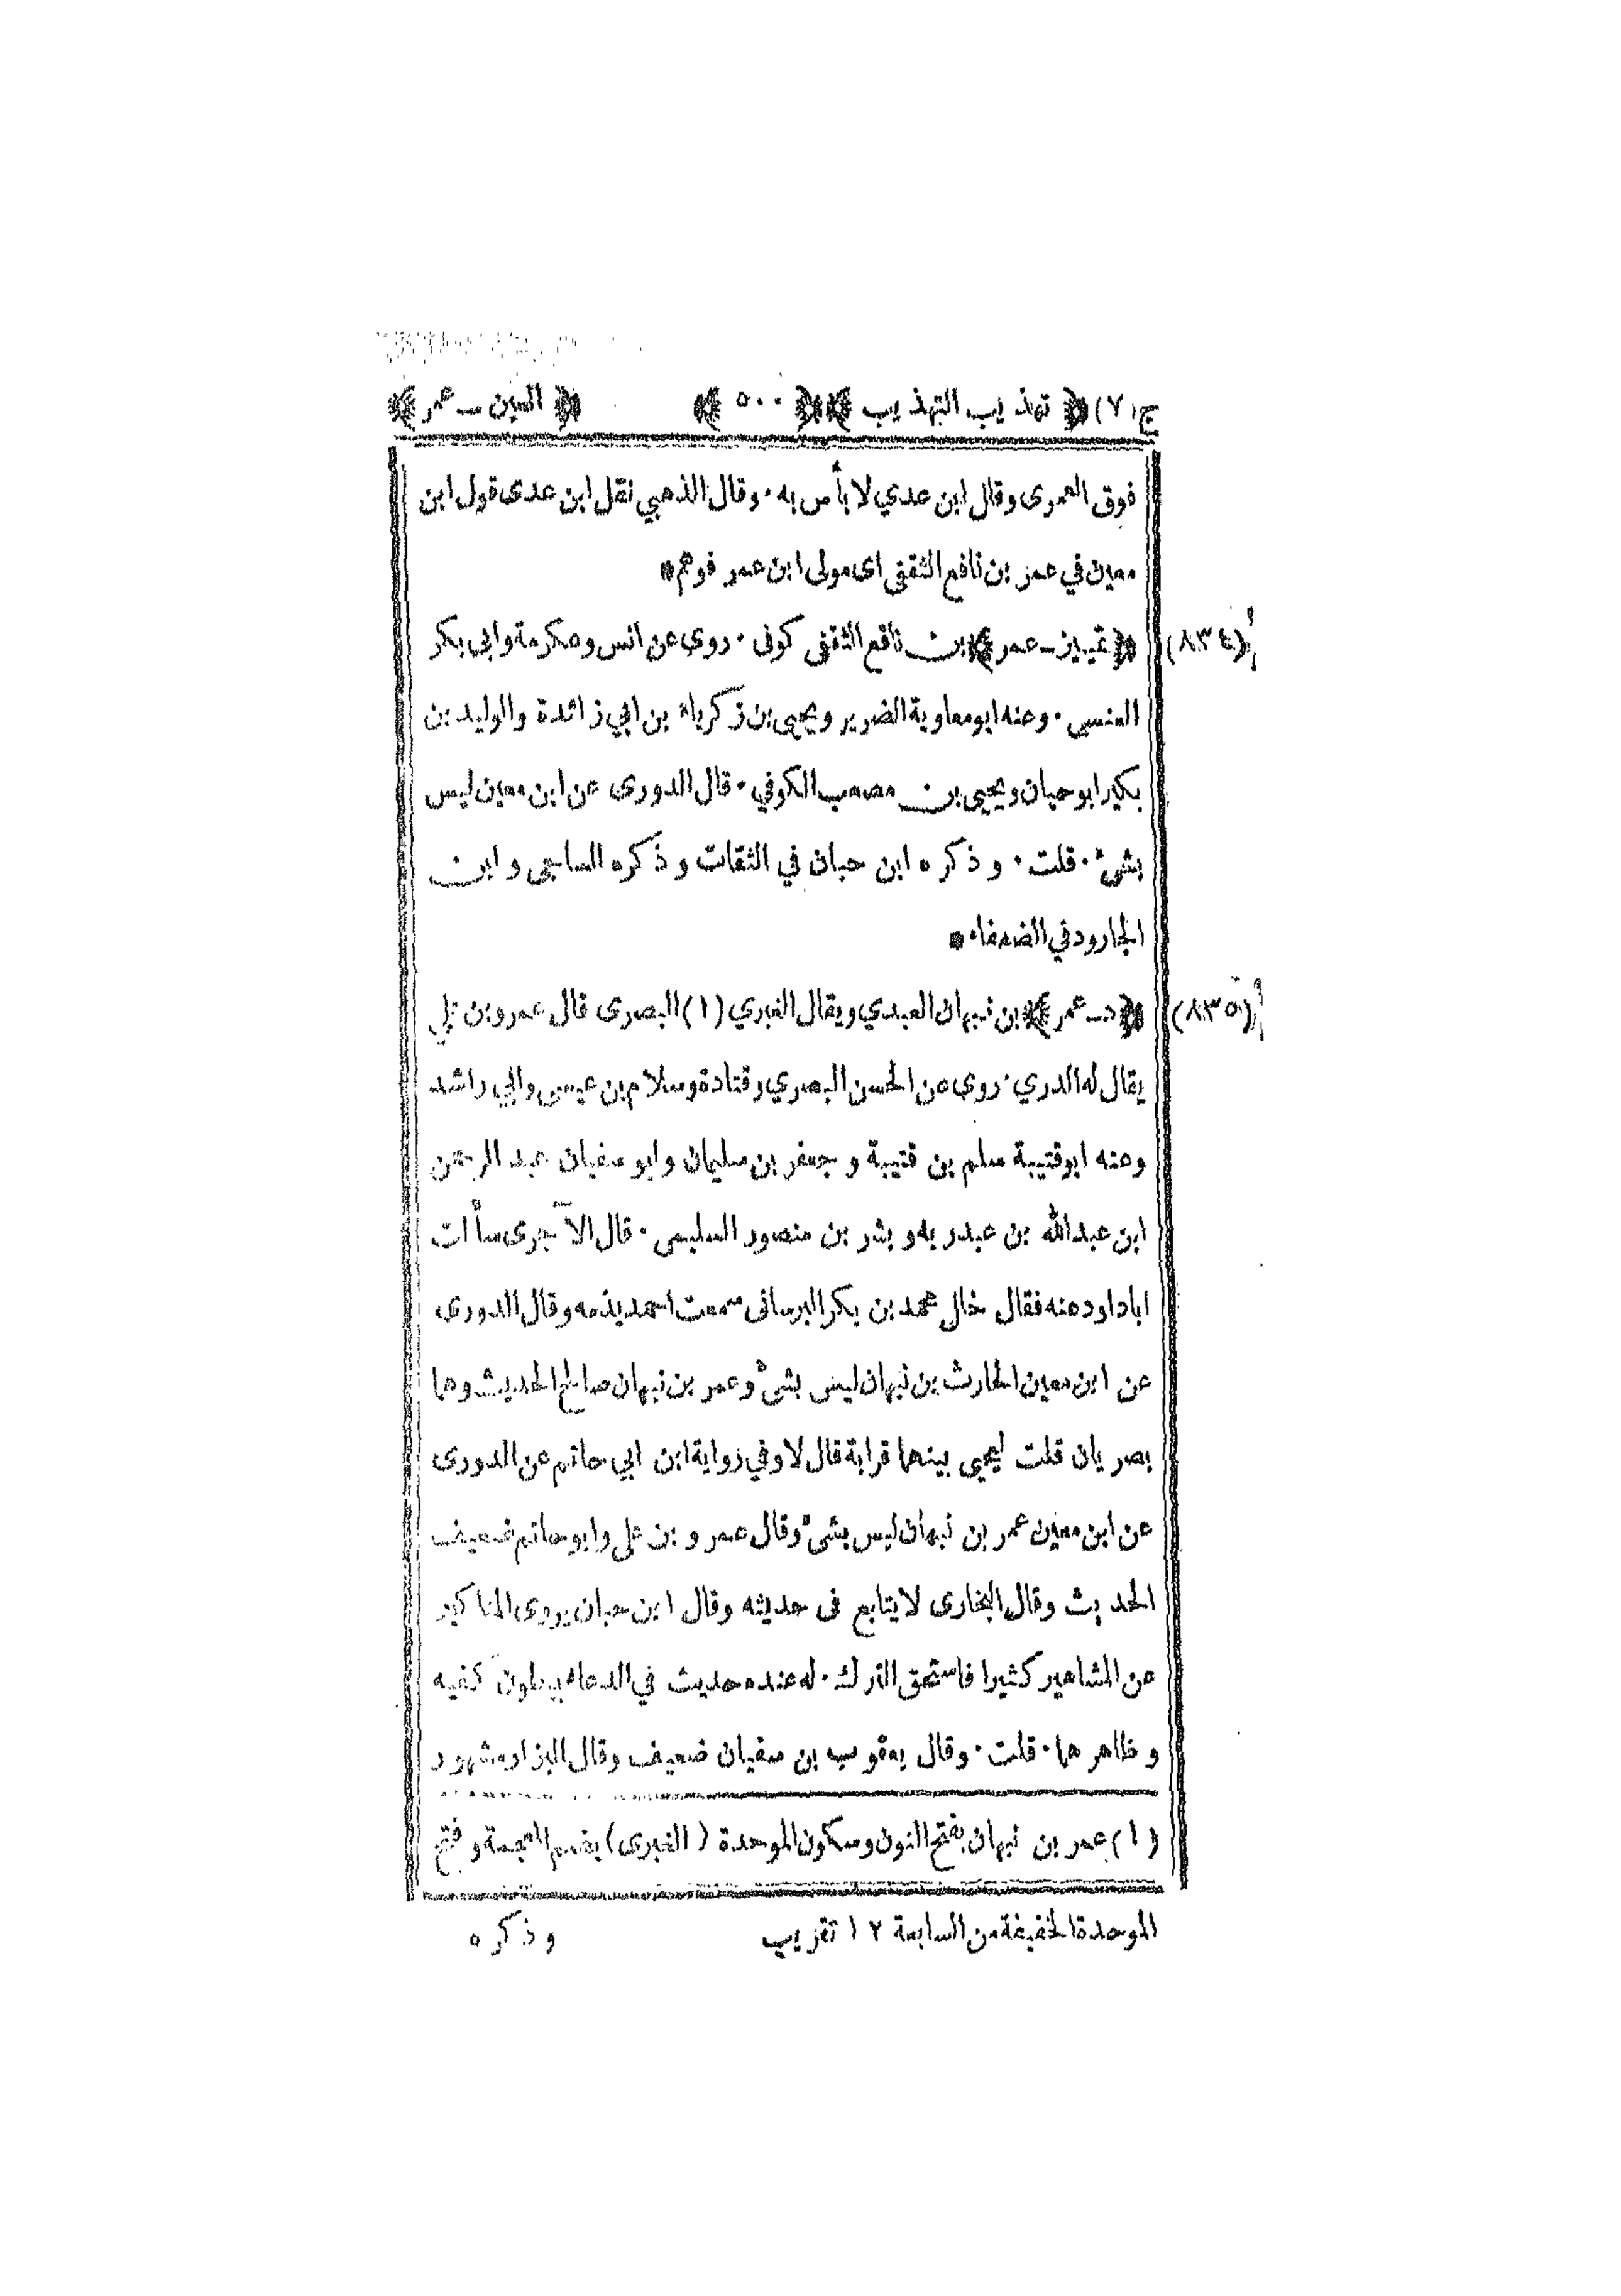 ج(٧) ﴿ تهذيب التهذيب ﴾ ﴿ ٥٠٠ ﴾ ﴿ العين ـ عمر ﴾
فوق العمرى وقال ابن عدي لا بأس به٠ وقال الذهبي نقل ابن عدى قول ابن
معين في عمر بن نافع الثقفى اى مولى ابن عمر فوهم *
(٨٣٤) ﴿ تمييز ـ عمر ﴾ بن نافع الثقفى كوفى٠ روى عن انس وعكرمة وابى بكر
العنسى٠ وعنه ابو معاوية الضرير ويحيى بن زكرياء بن ابي زائدة والوليد بن
بكير ابو حبان ويحيى بن مصعب الكوفي٠ قال الدورى عن ابن معين ليس
بشئ٠ قلت٠ وذكره ابن حبان في الثقات وذكره الساجى وابن
الجارود في الضعفاء *
(٨٣٥) ﴿ د ـ عمر ﴾ بن نبهان العبدي ويقال الغبري (١) البصرى قال عمرو بن علي
يقال له الدري٠ روى عن الحسن البصري وقتادة وسلام بن عيسى وابي راشد
وعنه ابو قتيبة سلم بن قتيبة وجعفر بن سليمان وابو سفيان عبد الرحمن
ابن عبدالله بن عبدربه وبشر بن منصور السليمى٠ قال الآجرى سألت
اباداود عنه فقال خال محمد بن بكر البرسانى سمعت احمد يذمه وقال الدورى
عن ابن معين الحارث بن نبهان ليس بشئ وعمر بن نبهان صالح الحديث وهما
بصريان قلت ليحيى بينهما قرابة قال لا وفي رواية ابن ابي حاتم عن الدورى
عن ابن معين عمر بن نبهان ليس بشئ وقال عمرو بن علي وابو حاتم ضعيف
الحديث وقال البخارى لا يتابع فى حديثه وقال ابن حبان يروى المناكير
عن المشاهير كثيرا فاستحق الترك٠ له عنده حديث في الدعاء ببطون كفيه
وظاهرهما٠ قلت٠ وقال يعقوب بن سفيان ضعيف وقال البزار مشهور
(١) عمر بن نبهان بفتح النون وسكون الموحدة (الغبرى) بضم المعجمة وفتح
الموحدة الخفيفة من السابعة ١٢ تقريب وذكره